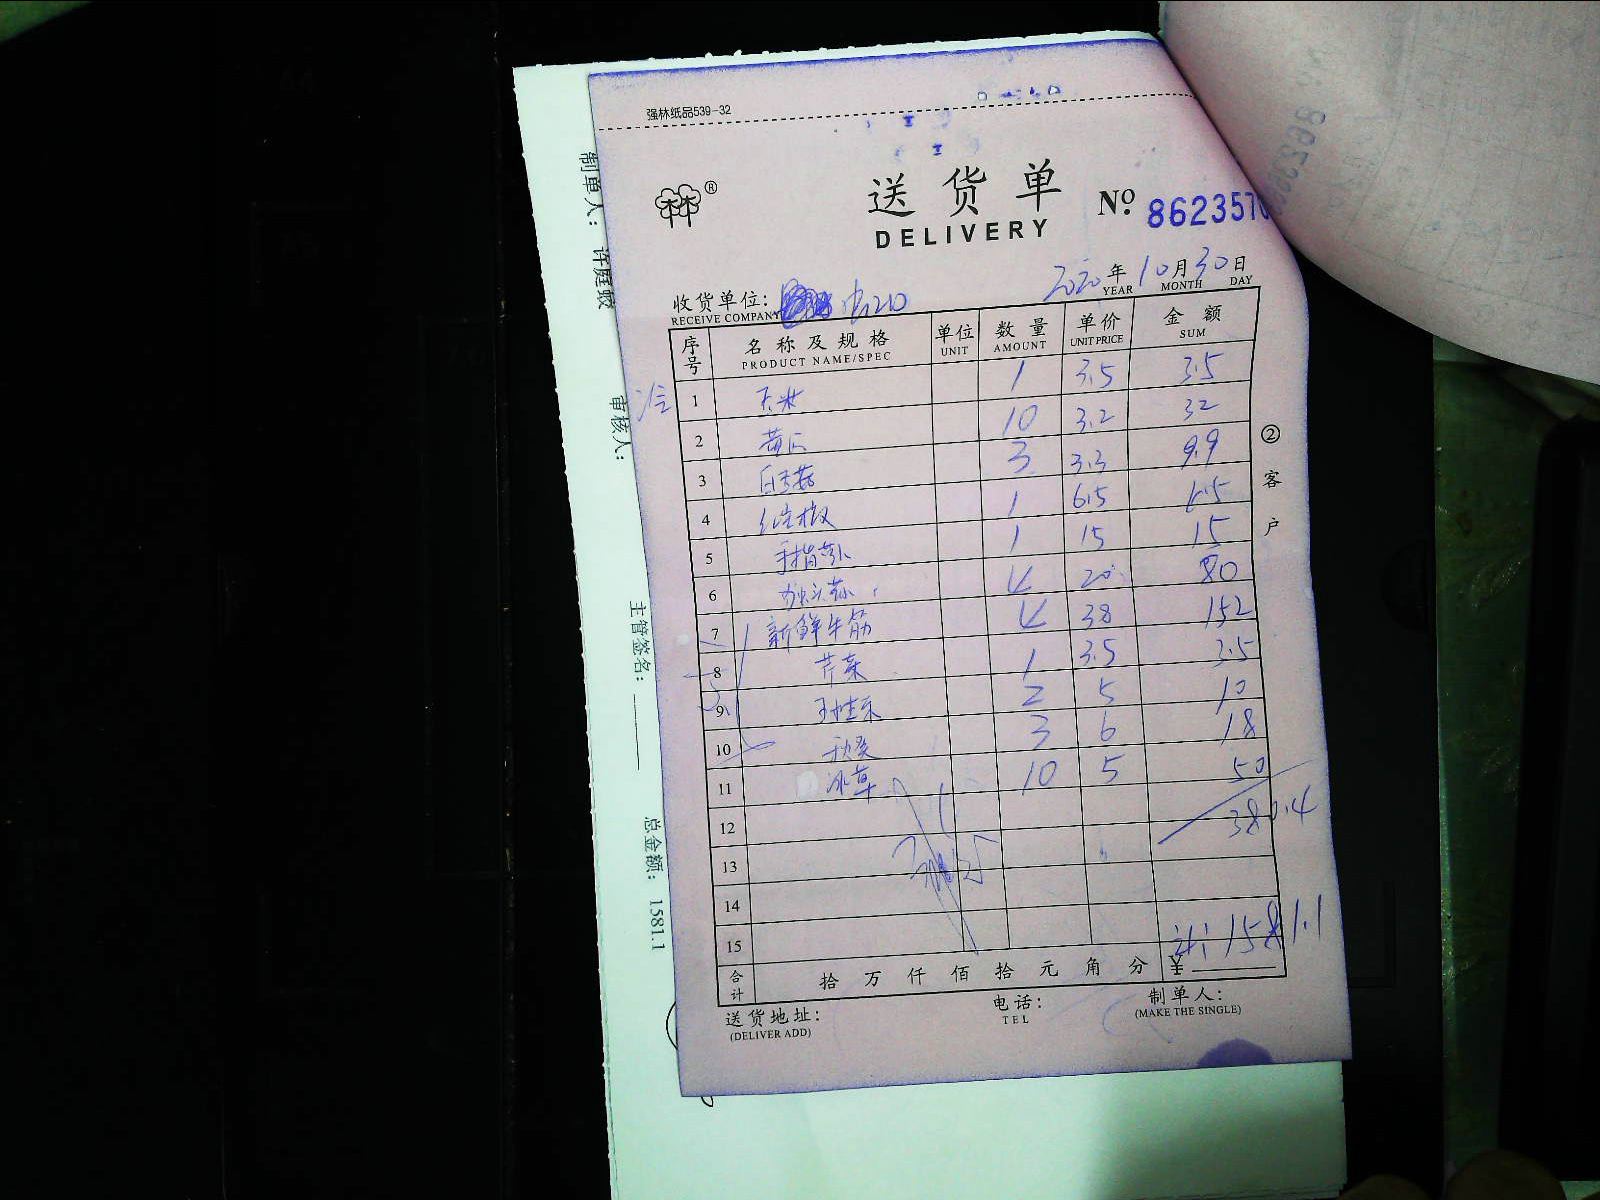 强林纸品539-32
送货单
DELIVERY
No. 8623570
2020年10月30日
YEAR MONTH DAY
收货单位:
RECEIVE COMPANY
序号 名称及规格 单位 数量 单价 金额
PRODUCT NAME/SPEC UNIT AMOUNT UNIT PRICE SUM
1 玉米 1 3.5 3.5
2 黄瓜 10 3.2 32
3 白玉菇 3 3.3 9.9
4 红尖椒 1 6.5 6.5
5 手指萝卜 1 15 15
6 4 20 80
7 新鲜牛筋 4 38 152
8 芹菜 1 3.5 3.5
9 2 5 10
10 秋葵 3 6 18
11 冰草 10 5 50
12 380.4
13
14
15 计: 1581.1
合计 拾万仟佰拾元角分 ¥
送货地址:
(DELIVER ADD)
电话:
TEL
制单人:
(MAKE THE SINGLE)
②客户
制单人: 许庭蛟
审核人:
主管签名:
总金额: 1581.1